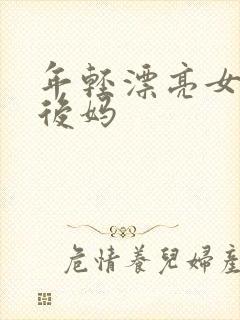 年轻漂亮女
後妈
危情養兒婦產